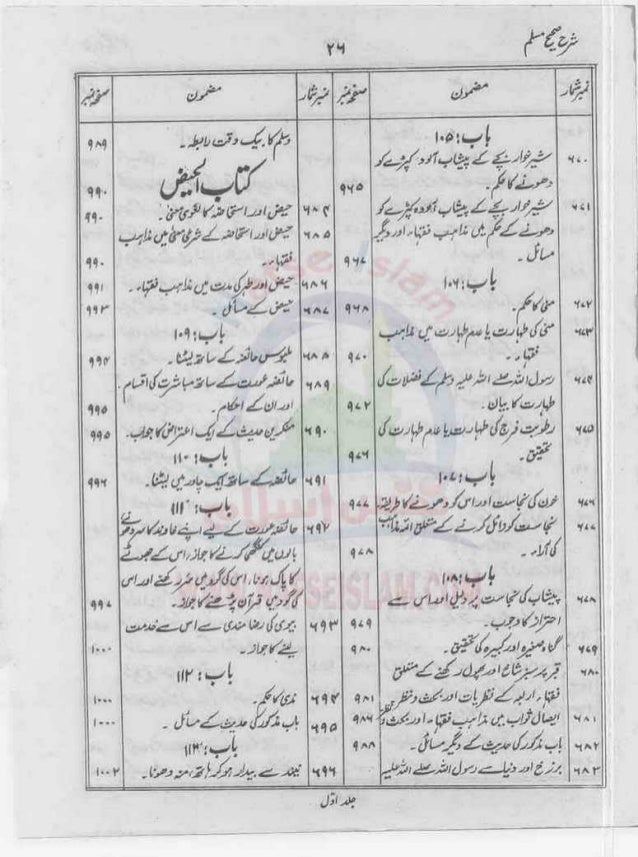 شرح صحیح مسلم
۲۶
نمبر شمار مضمون صفحہ نمبر
باب : ۱۰۵
۶۷۰ شیر خوار بچے کے پیشاب آلودہ کپڑے کو
دھونے کا حکم۔ ۹۶۵
۶۷۱ شیر خوار بچے کے پیشاب آلودہ کپڑے کو
دھونے کے حکم میں مذاہب فقہاء اور دیگر
مسائل۔ ۹۶۷
باب : ۱۰۶
۶۷۲ منی کا حکم۔ ۹۶۸
۶۷۳ منی کی طہارت یا عدم طہارت میں مذاہب
فقہاء۔ ۹۷۰
۶۷۴ رسول اللہ صلے اللہ علیہ وسلم کے فضلات کی
طہارت کا بیان۔ ۹۷۲
۶۷۵ رطوبت فرج کی طہارت یا عدم طہارت کی
تحقیق۔ ۹۷۶
باب : ۱۰۷
۶۷۶ خون کی نجاست اور اس کو دھونے کا طریقہ ۹۷۷
۶۷۷ نجاست کو زائل کرنے کے متعلق ائمہ مذاہب
کی آراء۔ ۹۷۸
باب : ۱۰۸
۶۷۸ پیشاب کی نجاست پر دلیل اور اس سے
احتراز کا وجوب۔ ۹۷۹
۶۷۹ گناہ صغیرہ اور کبیرہ کی تحقیق۔ ۹۸۰
۶۸۰ قبر پر سبز شاخ اور پھول رکھنے کے متعلق
فقہاء اربعہ کے نظریات اور بحث و نظر ۹۸۱
۶۸۱ ایصال ثواب میں مذاہب فقہاء اور بحث و نظر ۹۸۶
۶۸۲ باب مذکور کی حدیث کے دیگر مسائل۔ ۹۸۸
۶۸۳ برزخ اور دنیا سے رسول اللہ صلے اللہ علیہ
نمبر شمار مضمون صفحہ نمبر
وسلم کا بیک وقت رابطہ۔ ۹۸۹
کتاب الحیض ۹۹۰
۶۸۴ حیض اور استحاضہ کا لغوی معنیٰ۔ ۹۹۰
۶۸۵ حیض اور استحاضہ کے شرعی معنیٰ میں مذاہب
فقہاء۔ ۹۹۰
۶۸۶ حیض اور طہر کی مدت میں مذاہب فقہاء۔ ۹۹۱
۶۸۷ حیض کے مسائل۔ ۹۹۳
باب : ۱۰۹
۶۸۸ ملبوس حائضہ کے ساتھ لیٹنا۔ ۹۹۴
۶۸۹ حائضہ عورت کے ساتھ مباشرت کی اقسام
اور ان کے احکام۔ ۹۹۵
۶۹۰ منکرین حدیث کے ایک اعتراض کا جواب۔ ۹۹۵
باب : ۱۱۰
۶۹۱ حائضہ کے ساتھ ایک چادر میں لیٹنا۔ ۹۹۶
باب : ۱۱۱
۶۹۲ حائضہ عورت کے لیے اپنے خاوند کا سر دھونے
بالوں میں کنگھی کرنے کا جواز، اس کے جھوٹے
کا پاک ہونا، اس کی گود میں سر رکھنے اور اس
کی گود میں قرآن پڑھنے کا جواز۔ ۹۹۷
۶۹۳ بیوی کی رضا مندی سے اس سے خدمت
لینے کا جواز۔ ۱۰۰۰
باب : ۱۱۲
۶۹۴ مذی کا حکم۔ ۱۰۰۰
۶۹۵ باب مذکور کی حدیث کے مسائل۔ ۱۰۰۰
باب : ۱۱۳
۶۹۶ نیند سے بیدار ہو کر ہاتھ، منہ دھونا۔ ۱۰۰۲
جلد اوّل